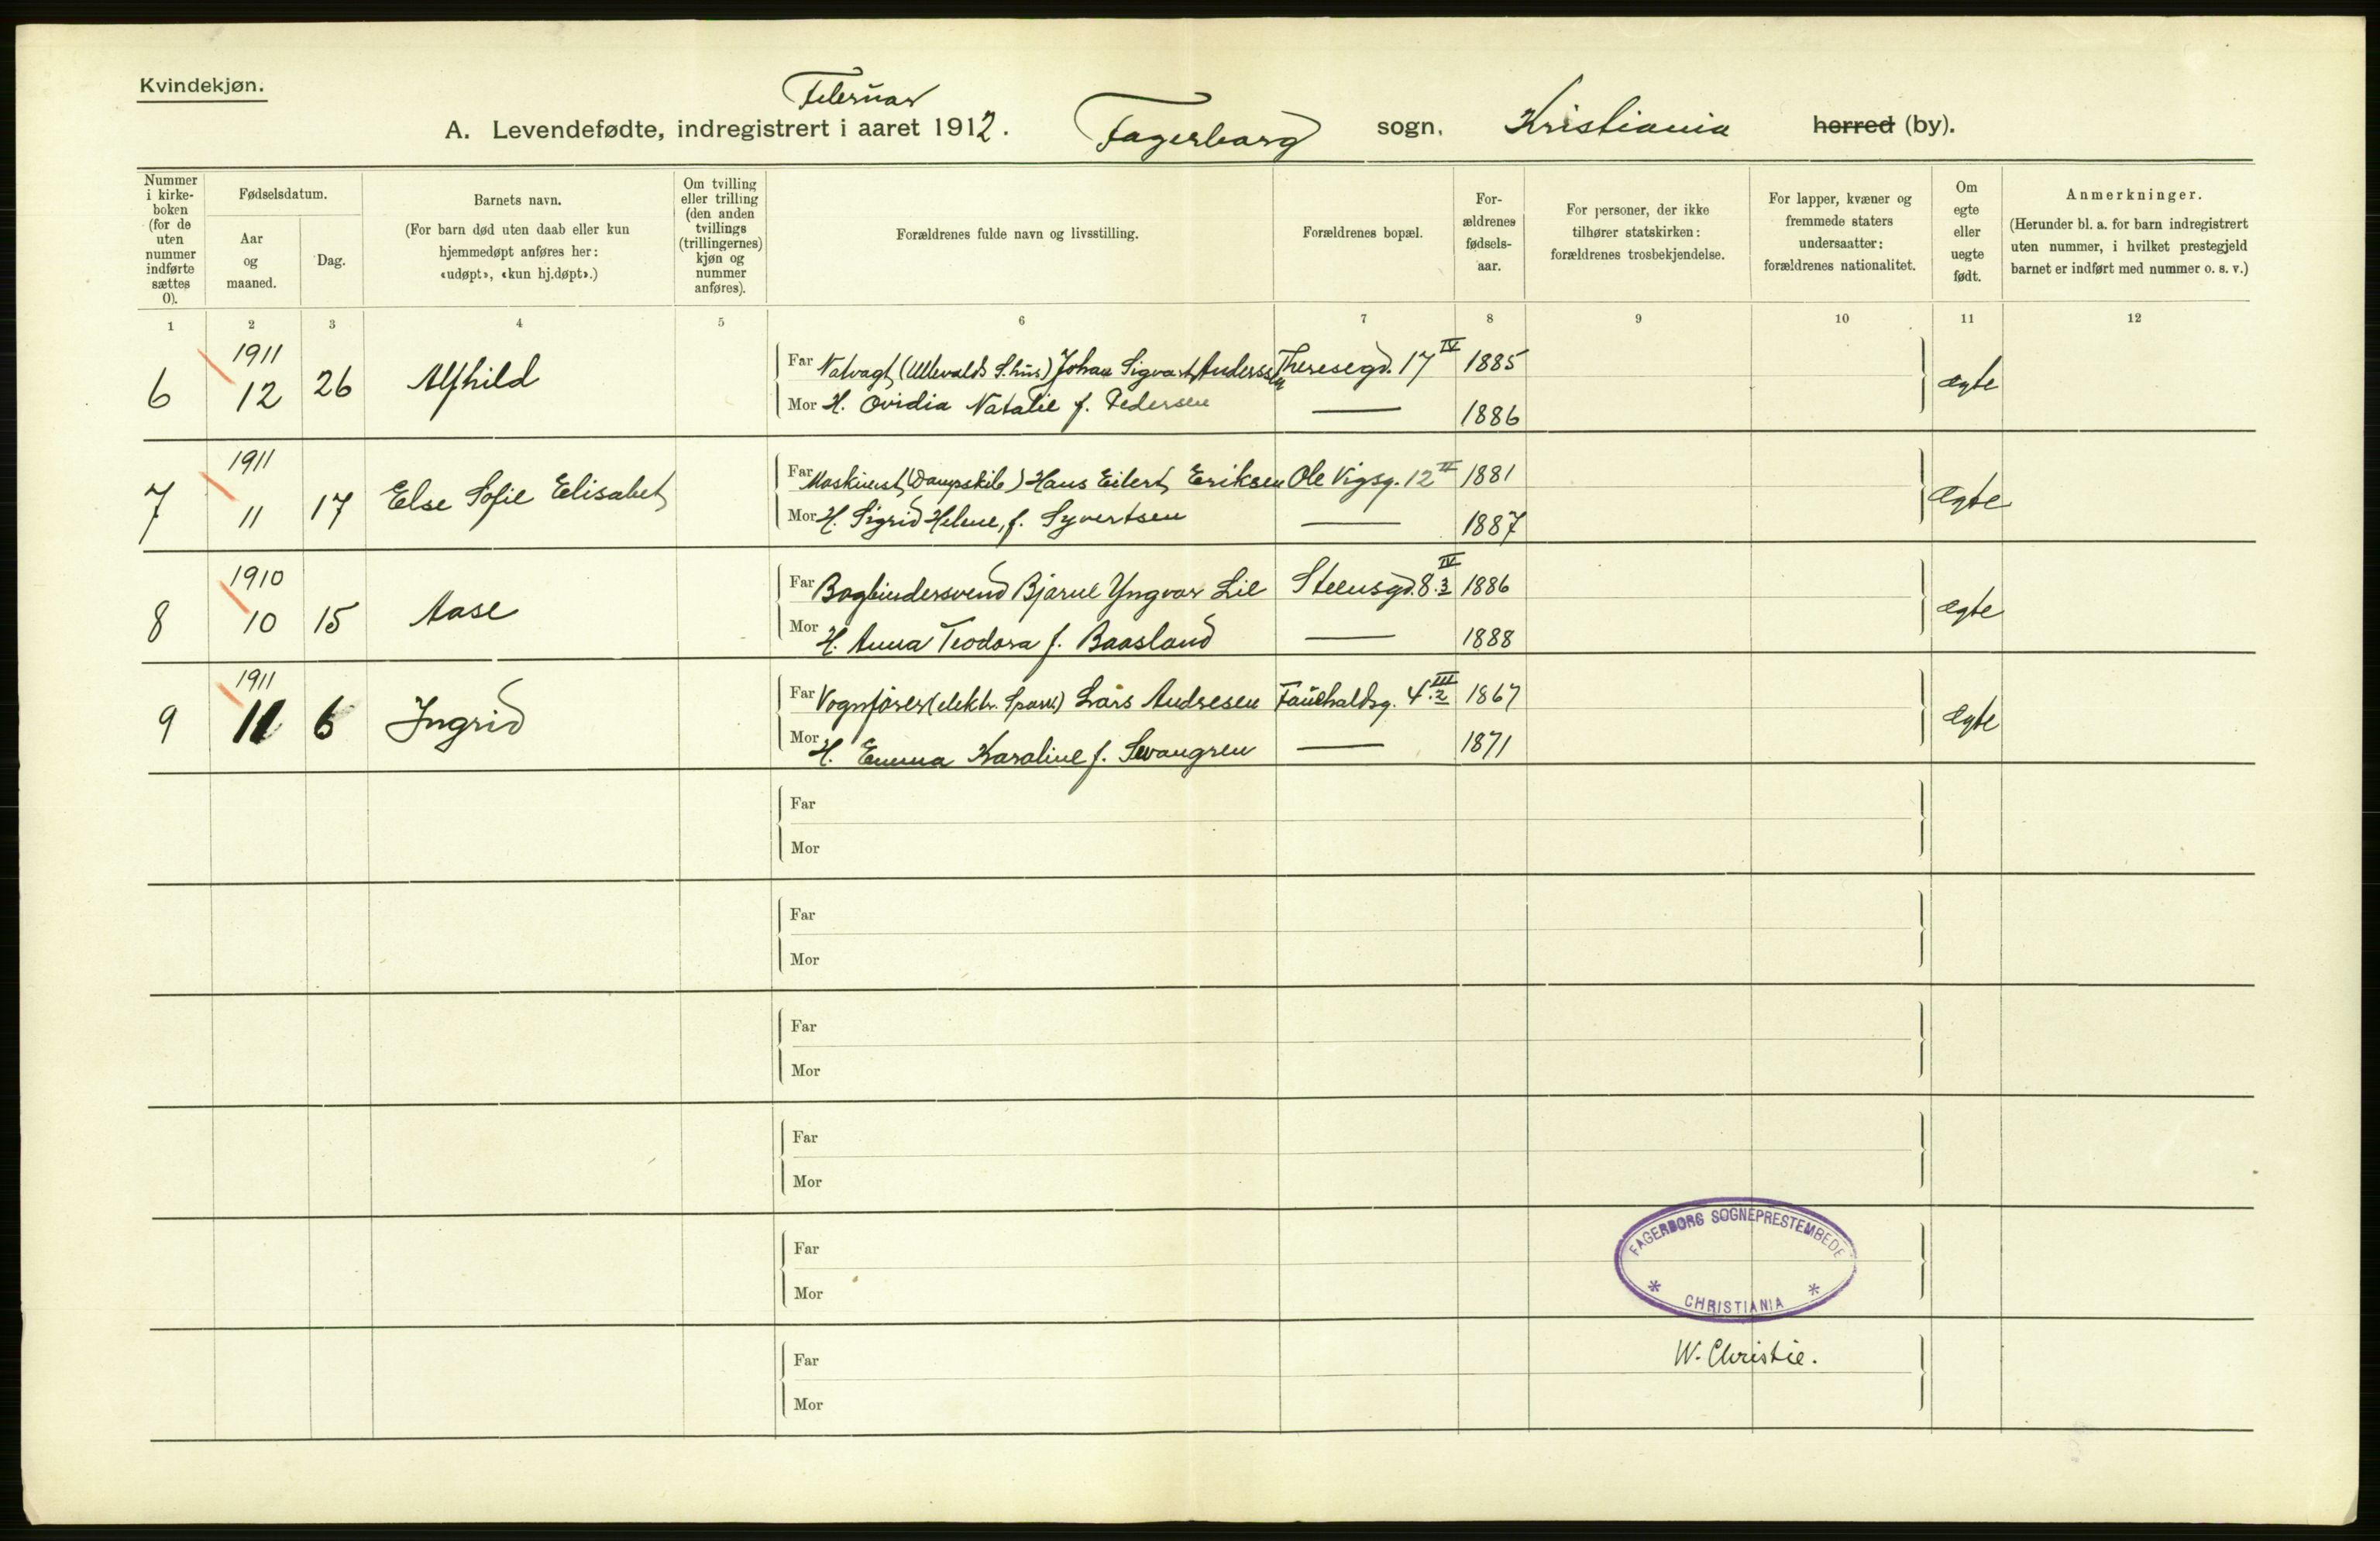 Kvindekjøn.
Februar
A. Levendefødte, indregistrert i aaret 1912. Fagerborg sogn, Kristiania herred (by).
Nummer i kirke-boken (for de uten nummer indførte sættes 0).
Fødselsdatum.
Aar og maaned.
Dag.
Barnets navn.
(For barn død uten daab eller kun hjemmedøpt anføres her: «udøpt», «kun hj.døpt».)
Om tvilling eller trilling (den anden tvillings (trillingernes) kjøn og nummer anføres).
Forældrenes fulde navn og livsstilling.
Forældrenes bopæl.
For-ældrenes fødsels-aar.
For personer, der ikke tilhører statskirken: forældrenes trosbekjendelse.
For lapper, kvæner og fremmede staters undersaatter: forældrenes nationalitet.
Om egte eller uegte født.
Anmerkninger.
(Herunder bl. a. for barn indregistrert uten nummer, i hvilket prestegjeld barnet er indført med nummer o. s. v.)
1 2 3 4 5 6 7 8 9 10 11 12
6 1911 12 26 Alfhild Far Natvagt (Ullevalds S.hus) Johan Sigvart Anderssen Theresegd. 17 IV 1885 ægte
Mor H. Ovidia Natalie f. Pedersen — 1886
7 1911 11 17 Else Sofie Elisabet Far Maskinist (Dampskib) Hans Eilert Eriksen Ole Vigsg. 12 II 1881 Ægte
Mor H. Sigrid Helene, f. Syvertsen — 1887
8 1910 10 15 Aase Far Bogbindersvend Bjarne Yngvar Lie Steensgd. 8.3 IV 1886 ægte
Mor H. Anna Teodora f. Baasland — 1888
9 1911 11 6 Ingrid Far Vognfører (elektr. Sporv.) Lars Andresen Fauchaldsg. 4.2 III 1867 Ægte
Mor H. Emma Karoline f. Swangren — 1871
Far
Mor
Far
Mor
Far
Mor
Far
Mor
Far
Mor
Far
Mor
FAGERBORG SOGNEPRESTEMBEDE
* CHRISTIANIA *
W. Christie.